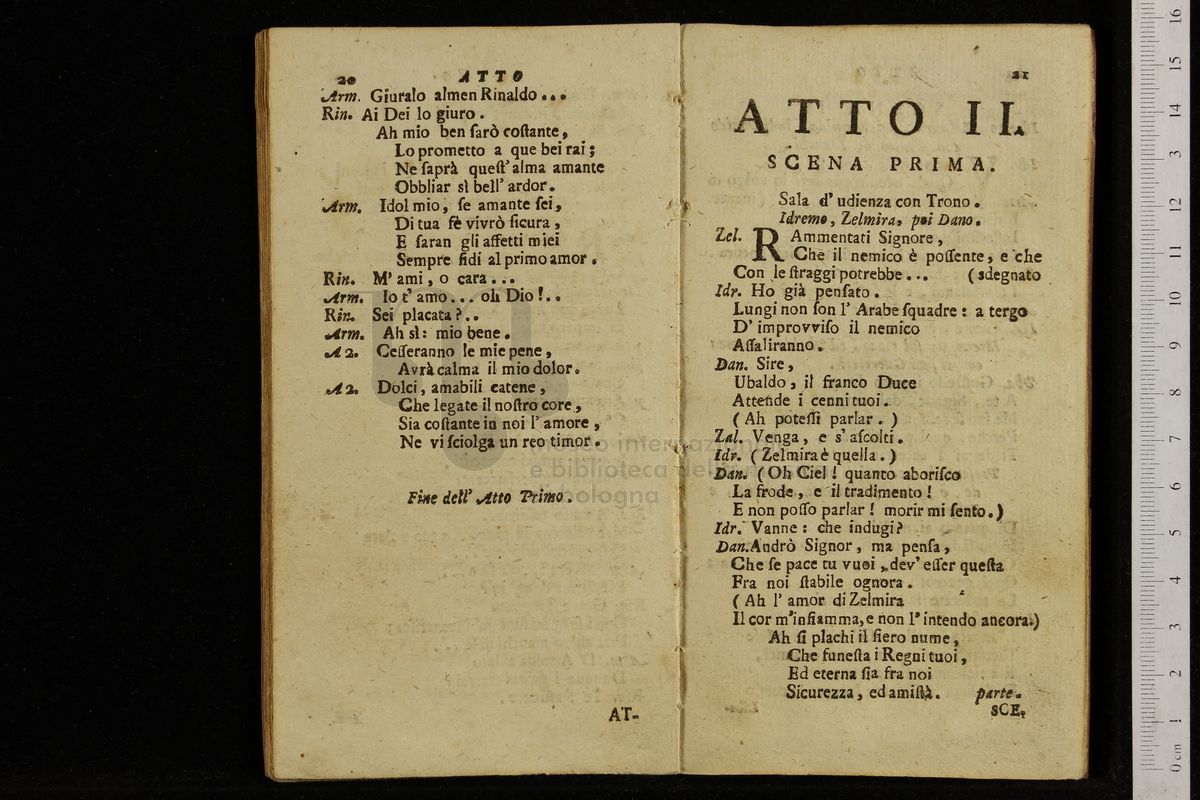 20 ATTO
Arm. Giuralo almen Rinaldo...
Rin. Ai Dei lo giuro.
Ah mio ben ſarò coſtante,
Lo prometto a que bei rai;
Ne ſaprà queſt' alma amante
Obbliar sì bell' ardor.
Arm. Idol mio, ſe amante ſei,
Di tua fè vivrò ſicura,
E ſaran gli affetti miei
Sempre fidi al primo amor.
Rin. M' ami, o cara...
Arm. Io t' amo... oh Dio!..
Rin. Sei placata?..
Arm. Ah sì: mio bene.
A 2. Ceſſeranno le mie pene,
Avrà calma il mio dolor.
A 2. Dolci, amabili catene,
Che legate il noſtro core,
Sia coſtante in noi l' amore,
Ne vi ſciolga un reo timor.
Fine dell' Atto Primo.
AT-
21
ATTO II.
SCENA PRIMA.
Sala d' udienza con Trono.
Idremo, Zelmira, poi Dano.
Zel. RAmmentati Signore,
Che il nemico è poſſente, e che
Con le ſtraggi potrebbe... (sdegnato
Idr. Ho già penſato.
Lungi non ſon l' Arabe ſquadre: a tergo
D' improvviſo il nemico
Aſſaliranno.
Dan. Sire,
Ubaldo, il franco Duce
Attende i cenni tuoi.
(Ah poteſſi parlar.)
Zal. Venga, e s' aſcolti.
Idr. (Zelmira è quella.)
Dan. (Oh Ciel! quanto aboriſco
La frode, e il tradimento!
E non poſſo parlar! morir mi ſento.)
Idr. Vanne: che indugi?
Dan. Andrò Signor, ma penſa,
Che ſe pace tu vuoi, dev' eſſer queſta
Fra noi ſtabile ognora.
(Ah l' amor di Zelmira
Il cor m'infiamma, e non l' intendo ancora.)
Ah ſi plachi il fiero nume,
Che funeſta i Regni tuoi,
Ed eterna ſia fra noi
Sicurezza, ed amiſtà. parte.
SCE.
museo internazionale
e biblioteca della musica
di bologna
0 cm 1 2 3 4 5 6 7 8 9 10 11 12 13 14 15 16